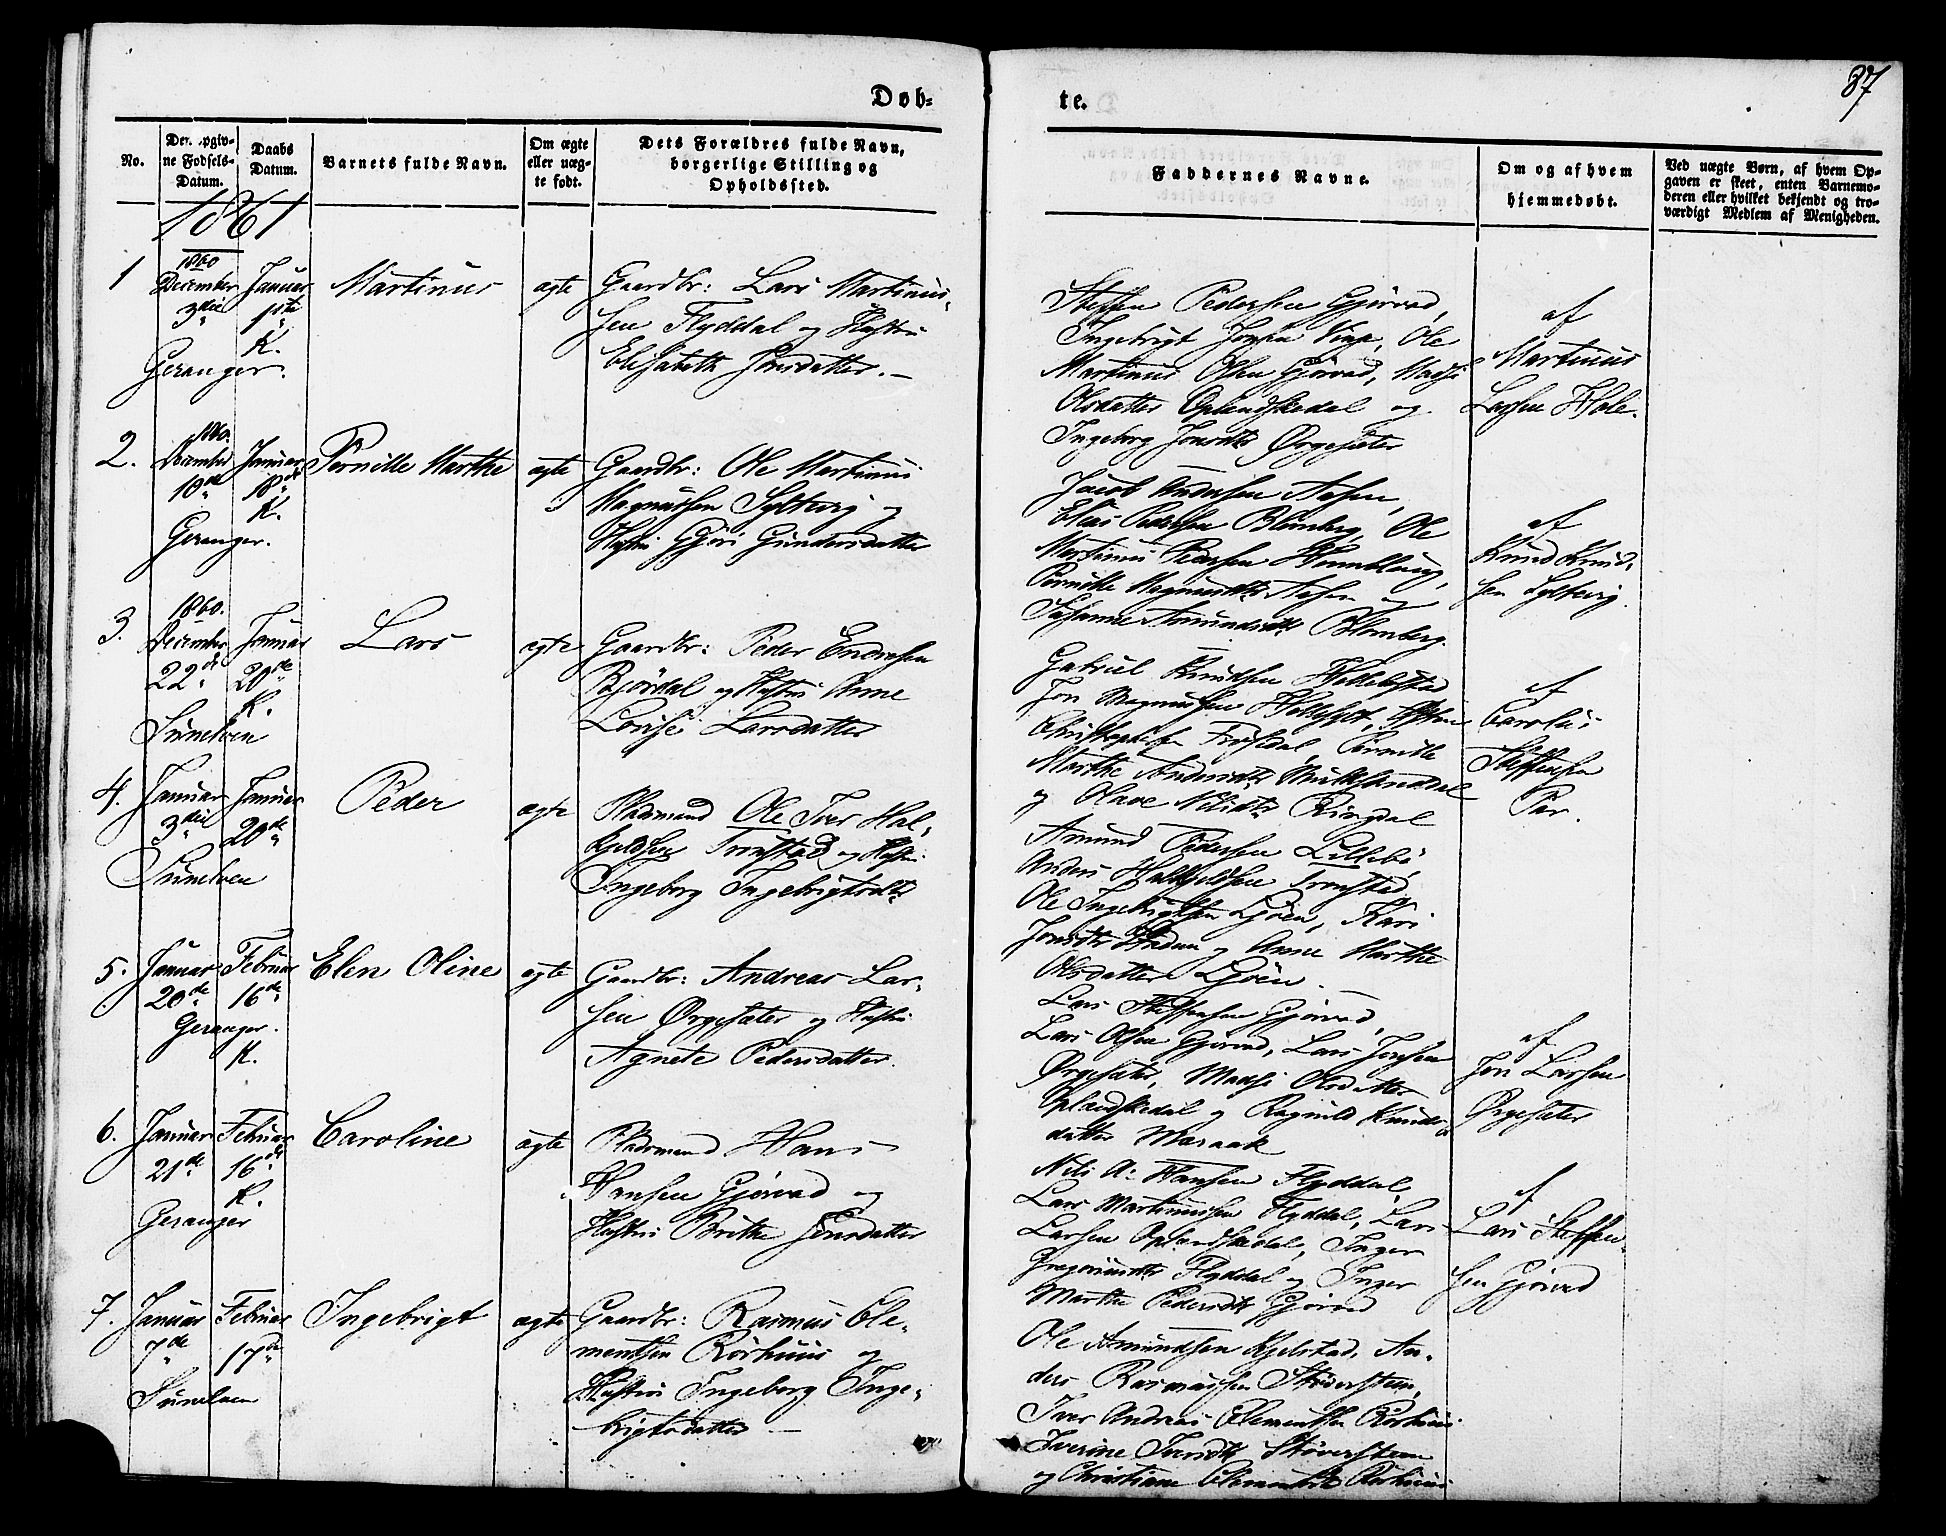 Døb-
te.
87
No.
Den opgiv-
ne Fødsels-
Datum.
Daabs
Datum.
Barnets fulde Navn.
Om ægte
eller uæg-
te født.
Dets Forældres fulde Navn,
borgerlige Stilling og
Opholdssted.
Faddernes Navne.
Om og af hvem
hjemmedøbt.
Ved uægte Børn, af hvem Op-
gaven er skeet, enten Barnemo-
deren eller hvilket bekjendt og tro-
værdigt Medlem af Menigheden.
1861
1
1860
December
3die
Geranger.
Januar
1ste
K.
Martinus
ægte
Gaardbr: Lars Martinus-
sen Flyddal og Hustru
Elisabeth Jonsdatter. —
Steffen Pedersen Gjørvad,
Ingebrigt Jonsen Vinje, Ole
Martinus Olsen Gjørvad, Madsi
Olsdatter Oplændskedal og
Ingeborg Jonsdtr Ørgesæter
af
Martinus
Larsen Hole.
2.
1860.
December
10de
Geranger.
Januar
18de
K.
Pernille Marthe
ægte
Gaardbr: Ole Martinus
Magnussen Syltevig og
Hustru Gjøri Gundersdatter
Jacob Andersen Aasen,
Elias Pedersen Blomberg, Ole
Martinus Pedersen
Pernille Magnusdtr Aasen og
Susanne Amundsdtr Blomberg.
af
Knud Knud-
sen Syltevig.
3.
1860.
December
22de
Sunelven
Januar
20de
K.
Lars
ægte
Gaardbr: Peder Endresen
Bjørdal og Hustru Anne
Lovise Larsdatter
Gabriel Knudsen Hellebostad
Jon Magnussen Hellesylt,
Christophersen Frøisedal, Pernille
Marthe Andersdtr
og Olave Nilsdtr Ringdal
af
Carolus
Steffensen
Par.
4.
Januar
3die
Sunelven
Januar
20de
Peder
ægte
Pladsmand Ole Iver Hal-
kjeldsen Tronstad og Hustru
Ingeborg Ingebrigtsdtr
Amund Pedersen Lillebø,
Anders Halkjeldsen Tronstad
Ole Ingebrigtsen Ljøen, Kari
Jonsdtr og Anne Marthe
Olsdatter Ljøen. —
5.
Januar
20de
Geranger.
Februar
16de
K.
Elen Oline
ægte
Gaardbr: Andreas Lar-
sen Ørgesæter og Hustru
Agnete Pedersdatter.
Lars Steffensen Gjørvad,
Lars Olsen Gjørvad, Lars Jonsen
Ørgesæter, Madsi Olsdatter
Oplændskedal og Ragnild Knuds-
datter Maraak
af
Jon Larsen
Ørgesæter
6.
Januar
21de
Geranger
Februar
16de
K.
Caroline
ægte
Pladsmand Hans
Hansen Gjørvad og
Hustru Brithe Jonsdatter
Nils A. Hansen Flyddal,
Lars Martinussen Flyddal, Lars
Larsen Oplændskedal, Inger
Gregoriusdtr Flyddal og Inger
Marthe Pedersdtr Gjørvad
af
Lars Steffen-
sen Gjørvad
7.
Januar
7de
Sunelven
Februar
17de
Ingebrigt
ægte
Gaardbr: Rasmus Cle-
mentsen Rørhuus og
Hustru Ingeborg Inge-
brigtsdatter —
Ole Amundsen Kjelstad, An-
ders Rasmussen Størersteen,
Iver Andreas Clementsen Rørhuus
Iverine Iversdtr Størersteen
og Christiane Clementsdtr Rørhuus